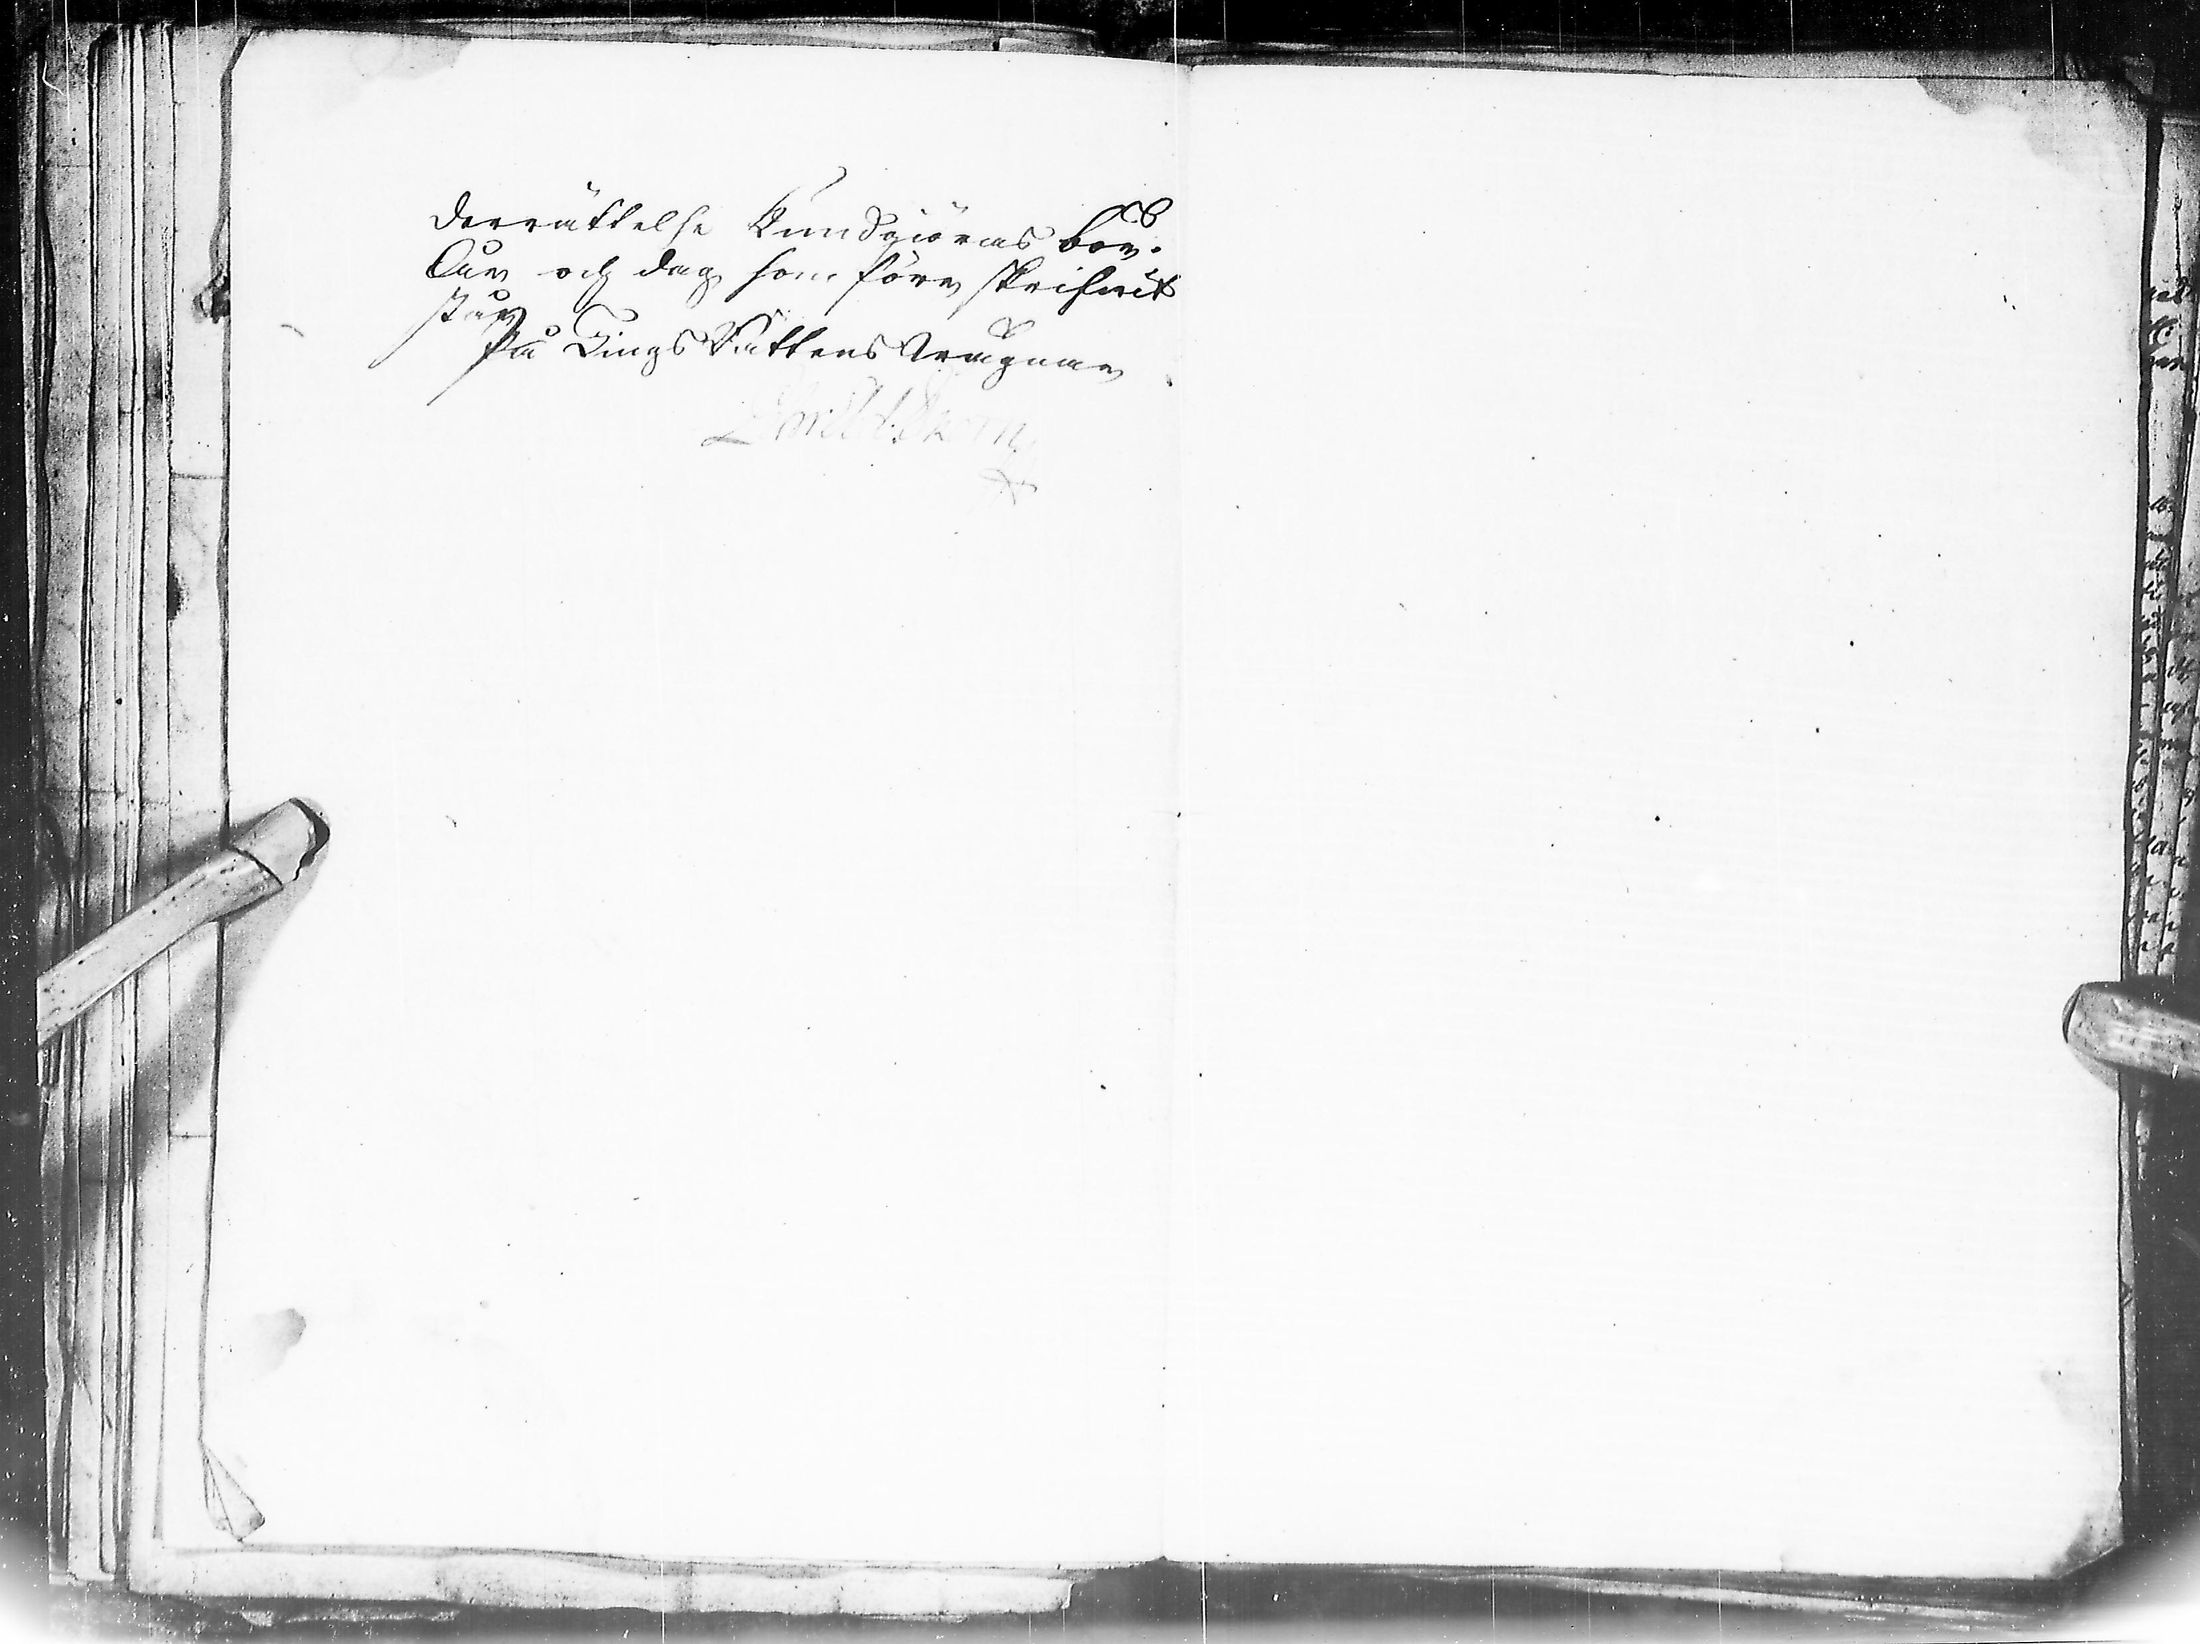 derrättelse Kundgiöras bör.
Åhr och dag som före skrifwit
står
På Tings Rättens wägnar